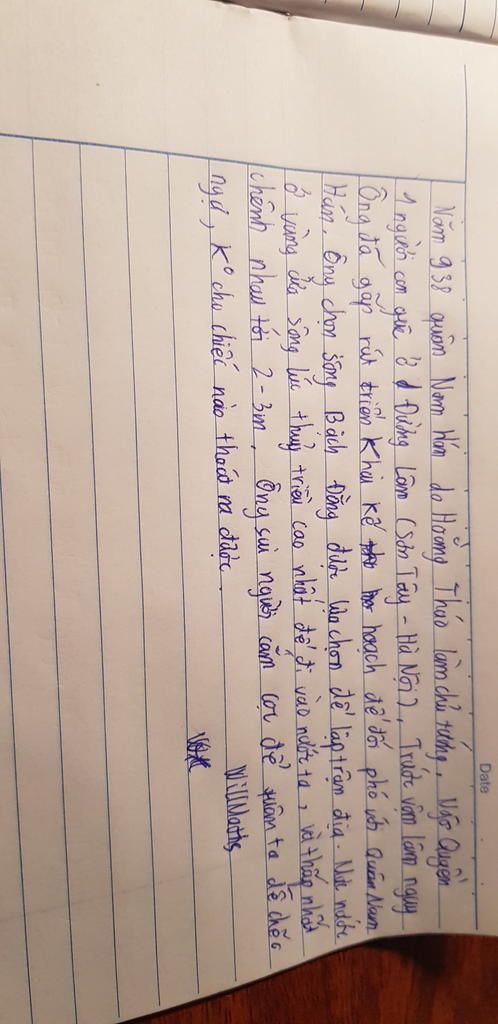 Date
Năm 938 quân Nam Hán do Hoằng Tháo làm chủ tướng, Ngô Quyền
1 người con quê ở Đường Lâm (Sơn Tây - Hà Nội), Trước vận lâm nguy
Ông đã gấp rút triển khai kế hoạch để đối phó với quân Nam
Hán. Ông chọn sông Bạch Đằng được lựa chọn để lập trận địa. Mực nước
ở vùng cửa sông lúc thuỷ triều cao nhất để đi vào nước ta, và thấp nhất
chênh nhau tới 2-3m. Ông sai người cắm cọc để quân ta dễ chế
ngự, k° cho chiếc nào thoát ra được.
WillMaths